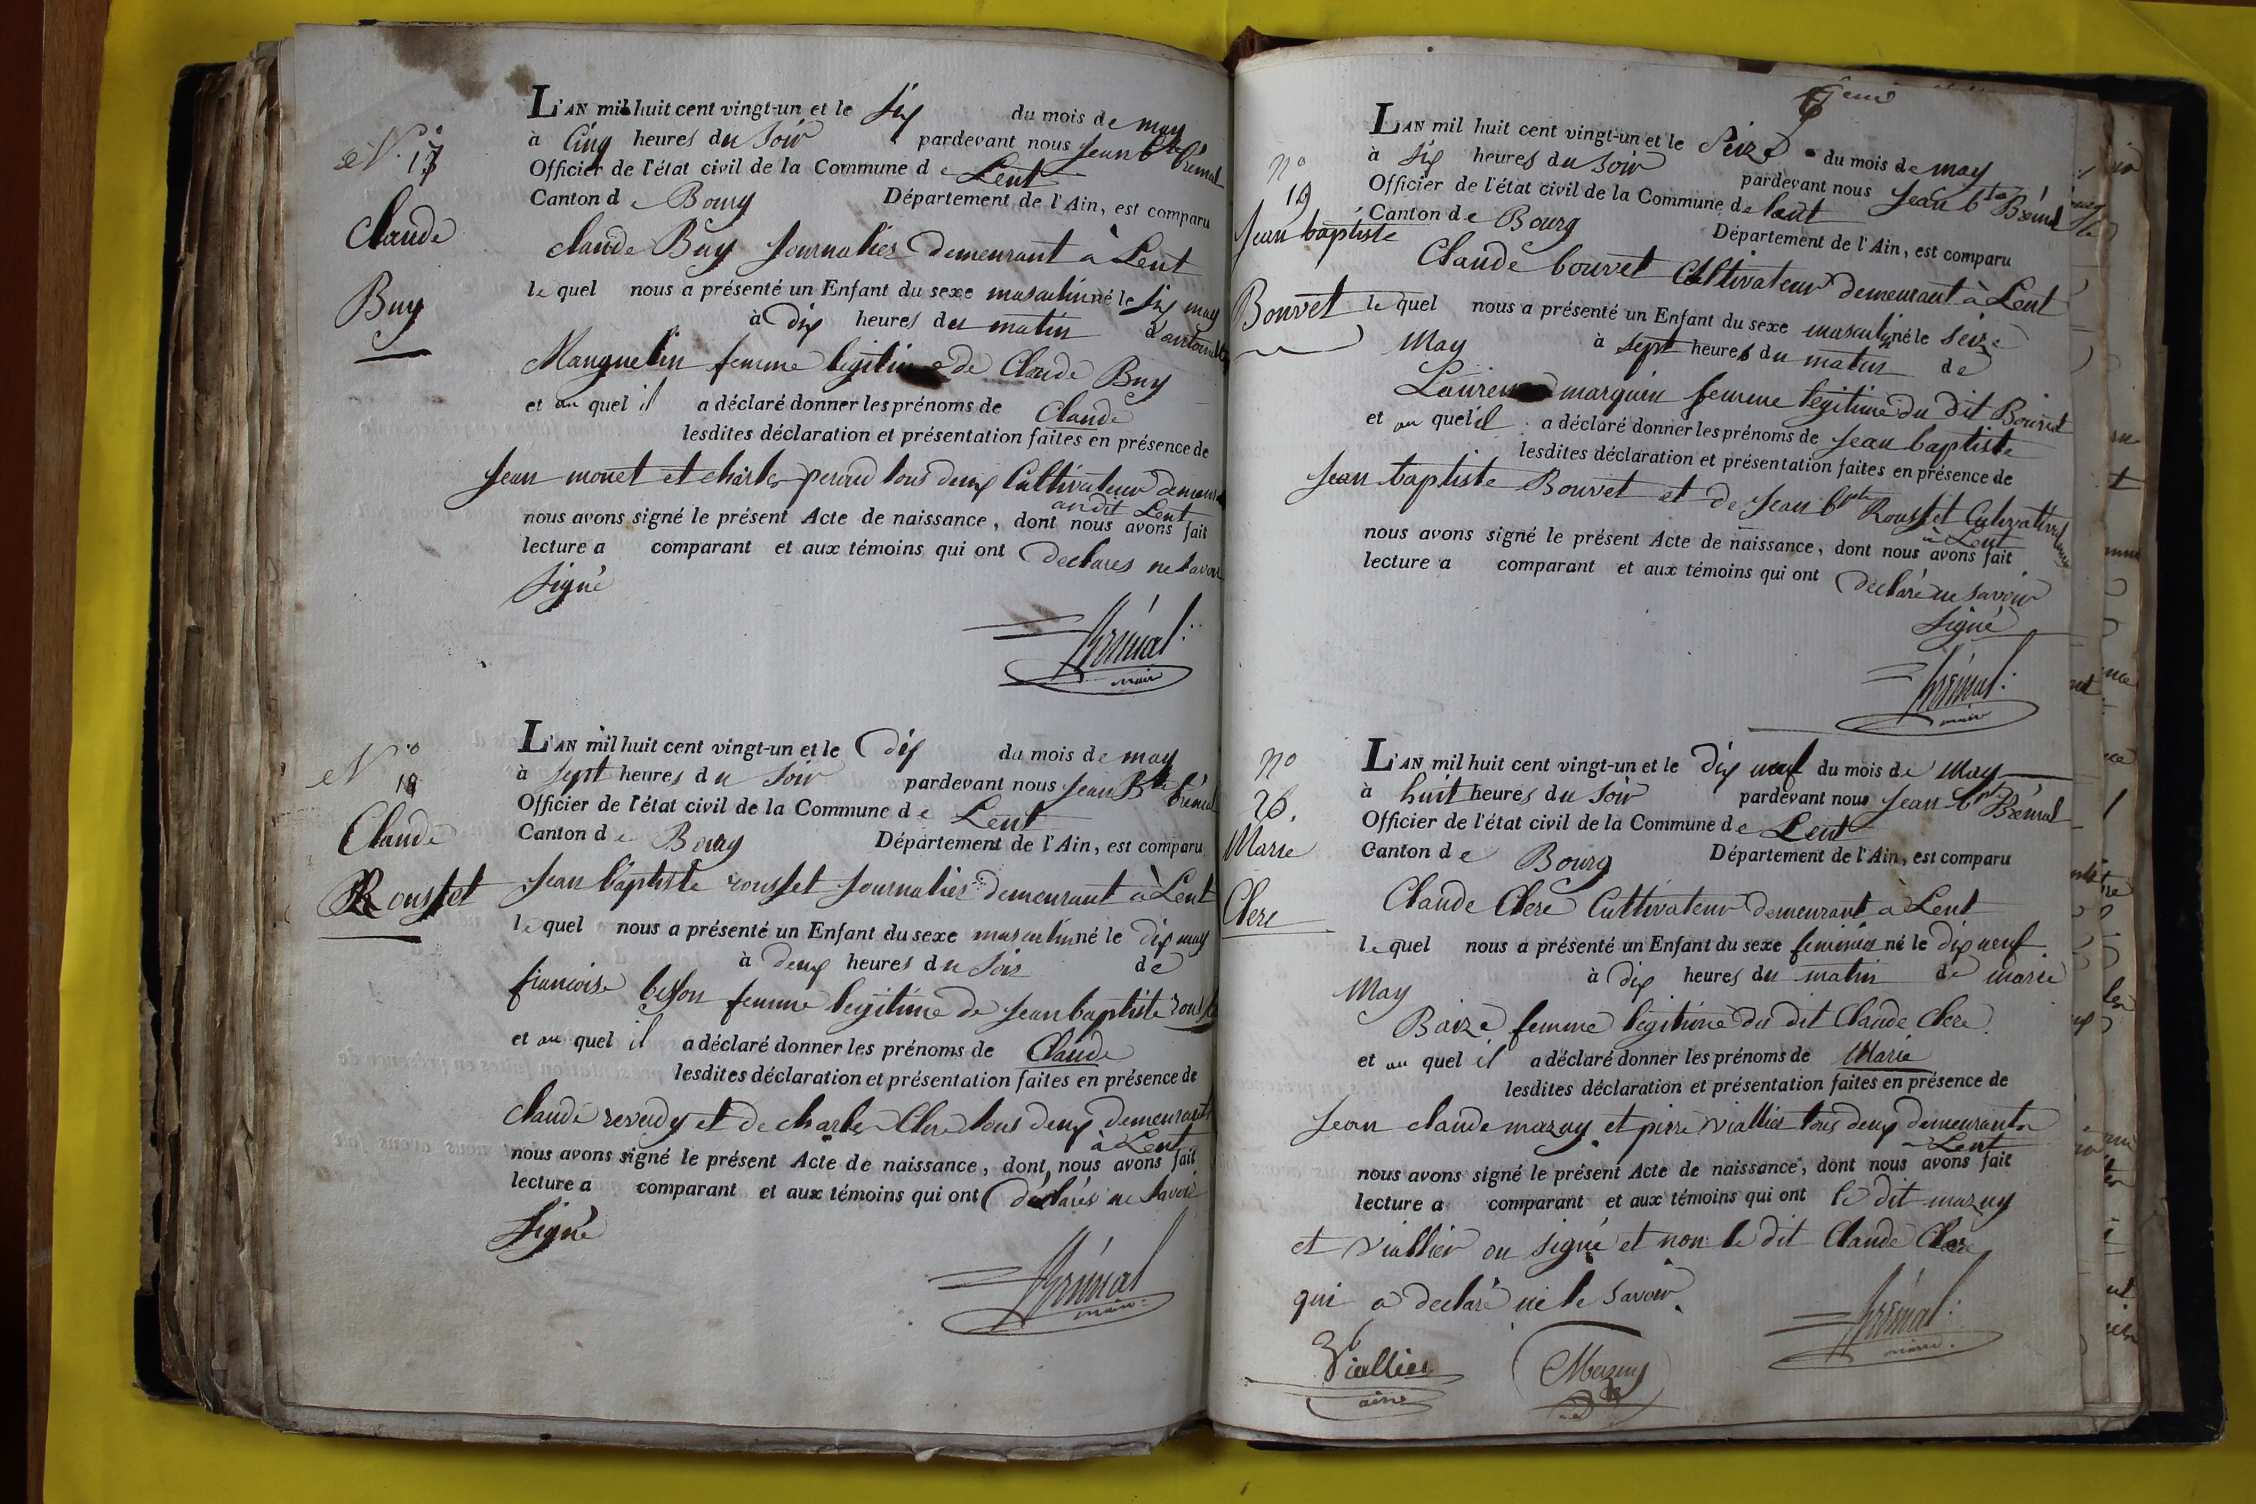 L'AN mil huit cent vingt-un et le six du mois de may
à cinq heures du soir pardevant nous jean Bte Brémal
Officier de l'état civil de la Commune de Lent
Canton de Bourg Département de l'Ain, est comparu
claude Buy journalier demeurant à Lent
le quel nous a présenté un Enfant du sexe masculin né le six may
à dix heures du matin d'antoinette
Manguelin femme legitime de Claude Buy
et au quel il a déclaré donner les prénoms de Claude
lesdites déclaration et présentation faites en présence de
jean monet et charles peroud tous deux Cultivateur demeurant
au dit Lent
nous avons signé le présent Acte de naissance, dont nous avons fait
lecture a comparant et aux témoins qui ont declarés ne savoir
signé
Brémal
maire
N.o 17
Claude
Buy
L'AN mil huit cent vingt-un et le dix du mois de may
à sept heures du soir pardevant nous jean Bte Brémal
Officier de l'état civil de la Commune de Lent
Canton de Bourg Département de l'Ain, est comparu
jean baptiste rousset journalier demeurant à Lent
le quel nous a présenté un Enfant du sexe masculin né le dix may
à deux heures du soir de
francoise besson femme legitime de jean baptiste rousset
et au quel il a déclaré donner les prénoms de Claude
lesdites déclaration et présentation faites en présence de
claude reveudy et de charles Clere tous deux demeurant
à Lent
nous avons signé le présent Acte de naissance, dont nous avons fait
lecture a comparant et aux témoins qui ont déclarés ne savoir
signé
Brémal
maire
N.o
18
Claude
Rousset
L'AN mil huit cent vingt-un et le seize du mois de may
à six heures du soir pardevant nous jean bte Brémal
Officier de l'état civil de la Commune de lent
Canton de Bourg Département de l'Ain, est comparu
Claude bouvet Cultivateur demeurant à Lent
le quel nous a présenté un Enfant du sexe masculin né le seize
May à sept heures du matin de
marguin femme legitime du dit Bouvet
et au quel il a déclaré donner les prénoms de jean baptiste
lesdites déclaration et présentation faites en présence de
jean baptiste Bouvet et de jean bpte Rousset
à Lent
nous avons signé le présent Acte de naissance, dont nous avons fait
lecture a comparant et aux témoins qui ont déclaré ne savoir
signé
Brémal
maire
No
19
jean baptiste
Bouvet
L'AN mil huit cent vingt-un et le dix neuf du mois de May
à huit heures du soir pardevant nous jean bpte Brémal
Officier de l'état civil de la Commune de Lent
Canton de Bourg Département de l'Ain, est comparu
Claude Clere Cultivateur demeurant à Lent
le quel nous a présenté un Enfant du sexe feminin né le dix neuf
May à dix heures du matin de marie
Baize femme légitime du dit Claude Clere
et au quel il a déclaré donner les prénoms de Marie
lesdites déclaration et présentation faites en présence de
jean claude mazuy et pierre viallier tous deux demeurant a
Lent
nous avons signé le présent Acte de naissance, dont nous avons fait
lecture a comparant et aux témoins qui ont le dit mazuy
et viallier on signé et non le dit Claude Clere
qui a declaré ne le savoir
Brémal
maire
Viallier
ainé
Mazuy
No
20.
Marie
Clere